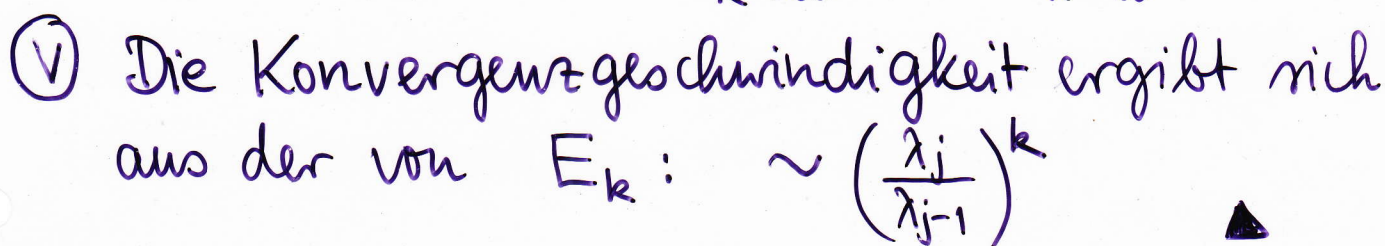 Ⓥ Die Konvergenzgeschwindigkeit ergibt sich
aus der von E_k : ~ (λ_j / λ_{j-1})^k ▲